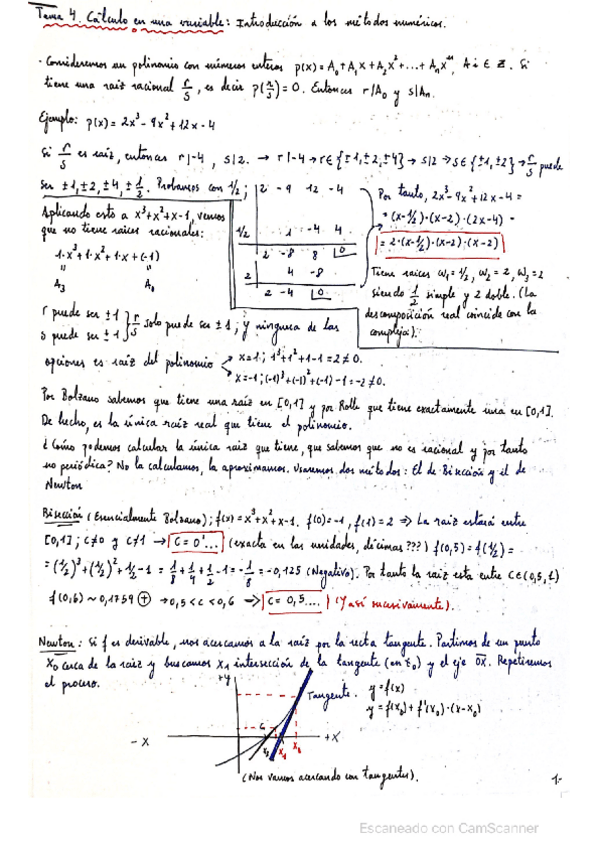 Tema 4. Cálculo en una variable: Introducción a los métodos numéricos.
· Consideremos un polinomio con números enteros p(x) = A₀+A₁x+A₂x²+...+Aₙxⁿ, Ai ∈ Z. Si
tiene una raíz racional r/s, es decir p(r/s)=0. Entonces r/A₀ y s/Aₙ.
Ejemplo: p(x) = 2x³-9x²+12x-4
Si r/s es raíz, entonces r|-4, s|2. → r|-4 → r∈{±1,±2,±4} → s|2 → s∈{±1,±2} → r/s puede
ser ±1,±2,±4,±1/2. Probamos con 1/2;
2 -9 12 -4
1/2 1 -4 4
2 -8 8 0
2 4 -8
2 -4 0
Por tanto, 2x³-9x²+12x-4 =
= (x-1/2)·(x-2)·(2x-4) =
= 2·(x-1/2)·(x-2)·(x-2)
Tiene raíces ω₁=1/2, ω₂=2, ω₃=2
siendo 1/2 simple y 2 doble. (La
descomposición real coincide con la
compleja).
Aplicando esto a x³+x²+x-1, vemos
que no tiene raíces racionales:
1·x³+1·x²+1·x+(-1)
A₃ A₀
r puede ser ±1
s puede ser ±1 } r/s solo puede ser ±1; y ninguna de las
opciones es raíz del polinomio
x=1; 1³+1²+1-1=2≠0.
x=-1; (-1)³+(-1)²+(-1)-1=-2≠0.
Por Bolzano sabemos que tiene una raíz en [0,1] y por Rolle que tiene exactamente una en [0,1].
De hecho, es la única raíz real que tiene el polinomio.
¿Cómo podemos calcular la única raíz que tiene, que sabemos que no es racional y por tanto
no periódica? No la calculamos, la aproximamos. Usaremos dos métodos: El de Bisección y el de
Newton
Bisección (Esencialmente Bolzano); f(x)=x³+x²+x-1. f(0)=-1, f(1)=2 ⇒ La raíz estará entre
[0,1]; c≠0 y c≠1 → c=0'... (exacta en las unidades, décimas ???) f(0,5)=f(1/2)=
=(1/2)³+(1/2)²+1/2-1 = 1/8+1/4+1/2-1=-1/8=-0,125 (Negativo). Por tanto la raíz esta entre c∈(0,5,1)
f(0,6)~0,1759 ⊕ → 0,5<c<0,6 → c=0,5.... (Y así sucesivamente).
Newton: Si f es derivable, nos acercamos a la raíz por la recta tangente. Partimos de un punto
x₀ cerca de la raíz y buscamos x₁ intersección de la tangente (en x₀) y el eje OX. Repetiremos
el proceso.
+y
Tangente.
y=f(x)
y=f(x₀)+f'(x₀)·(x-x₀)
-X
+X
x₁
x₀
(Nos vamos acercando con tangentes).
1-
Escaneado con CamScanner